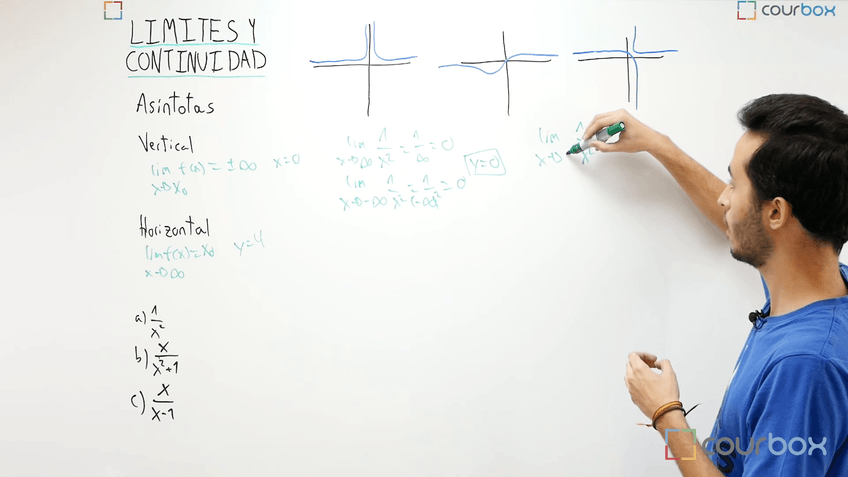 courbox
LIMITES Y
CONTINUIDAD
Asintotas
Vertical
lim f(x) = ±∞ x=0
x→x₀
Horizontal
lim f(x) = x₀ y=4
x→∞
a) 1/x²
b) x/x²+1
c) x/x-1
lim 1/x² = 1/∞ = 0
x→∞
y=0
lim 1/x² = 1/(-∞)² = 0
x→-∞
lim 1/x²
x→
courbox